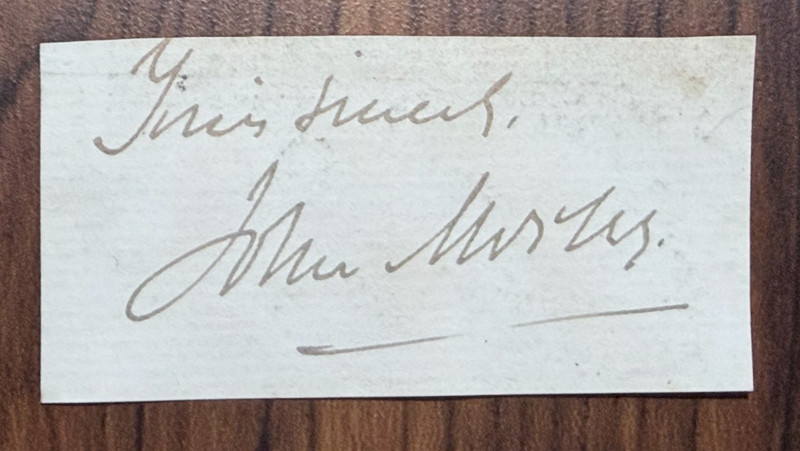 Yours sincerely,
John Morley.